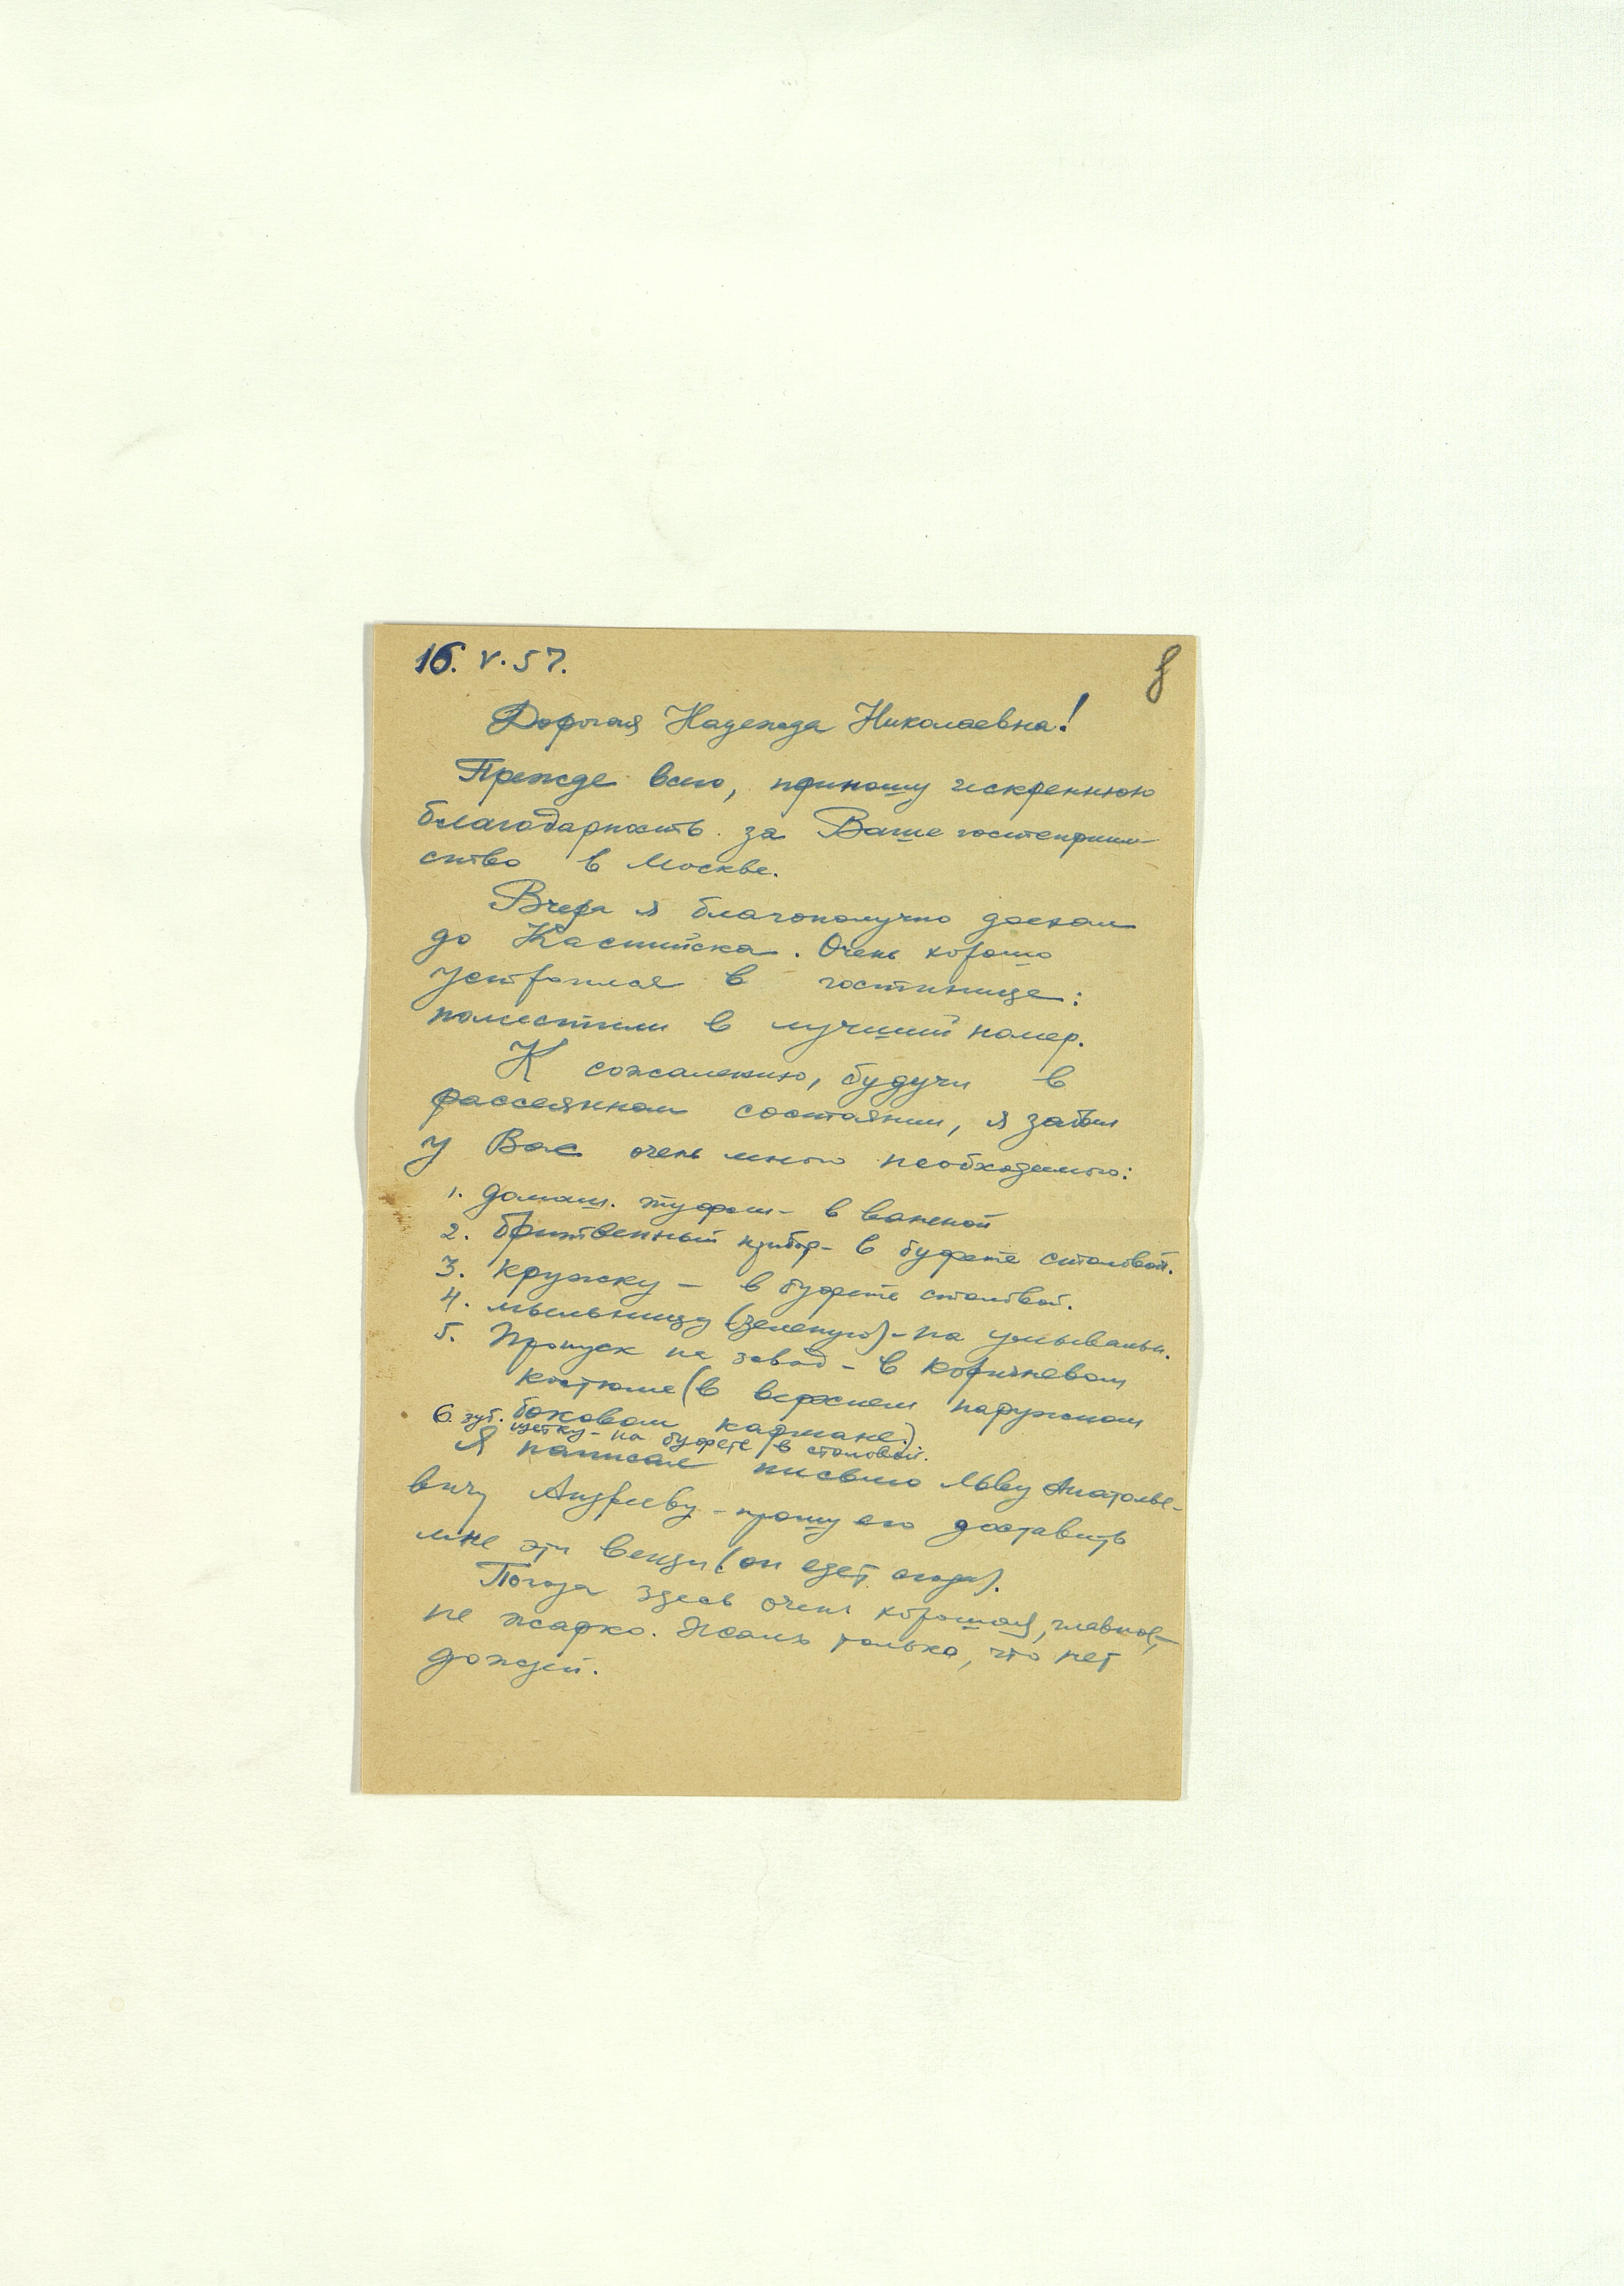 16. V. 57.
8
Дорогая Надежда Николаевна!
Прежде всего, приношу искреннюю
благодарность за Ваше гостеприим-
ство в Москве.
Вчера я благополучно доехал
до Каспийска. Очень хорошо
устроился в гостинице:
поместили в лучший номер.
К сожалению, будучи в
рассеянном состоянии, я забыл
у Вас очень много необходимого:
1. домаш. туфли - в ванной
2. бритвенный прибор - в буфете столовой.
3. кружку - в буфете столовой.
4. мыльницу (зеленую) - на умывальн.
5. Пропуск на завод - в коричневом
костюме (в верхнем наружном
боковом кармане.)
6. зуб. щетку - на буфете в столовой.
Я написал письмо Льву Анатолье-
вичу Андрееву - прошу его доставить
мне эти вещи (он едет сюда).
Погода здесь очень хорошая, главное,
не жарко. Жаль только, что нет
дождей.